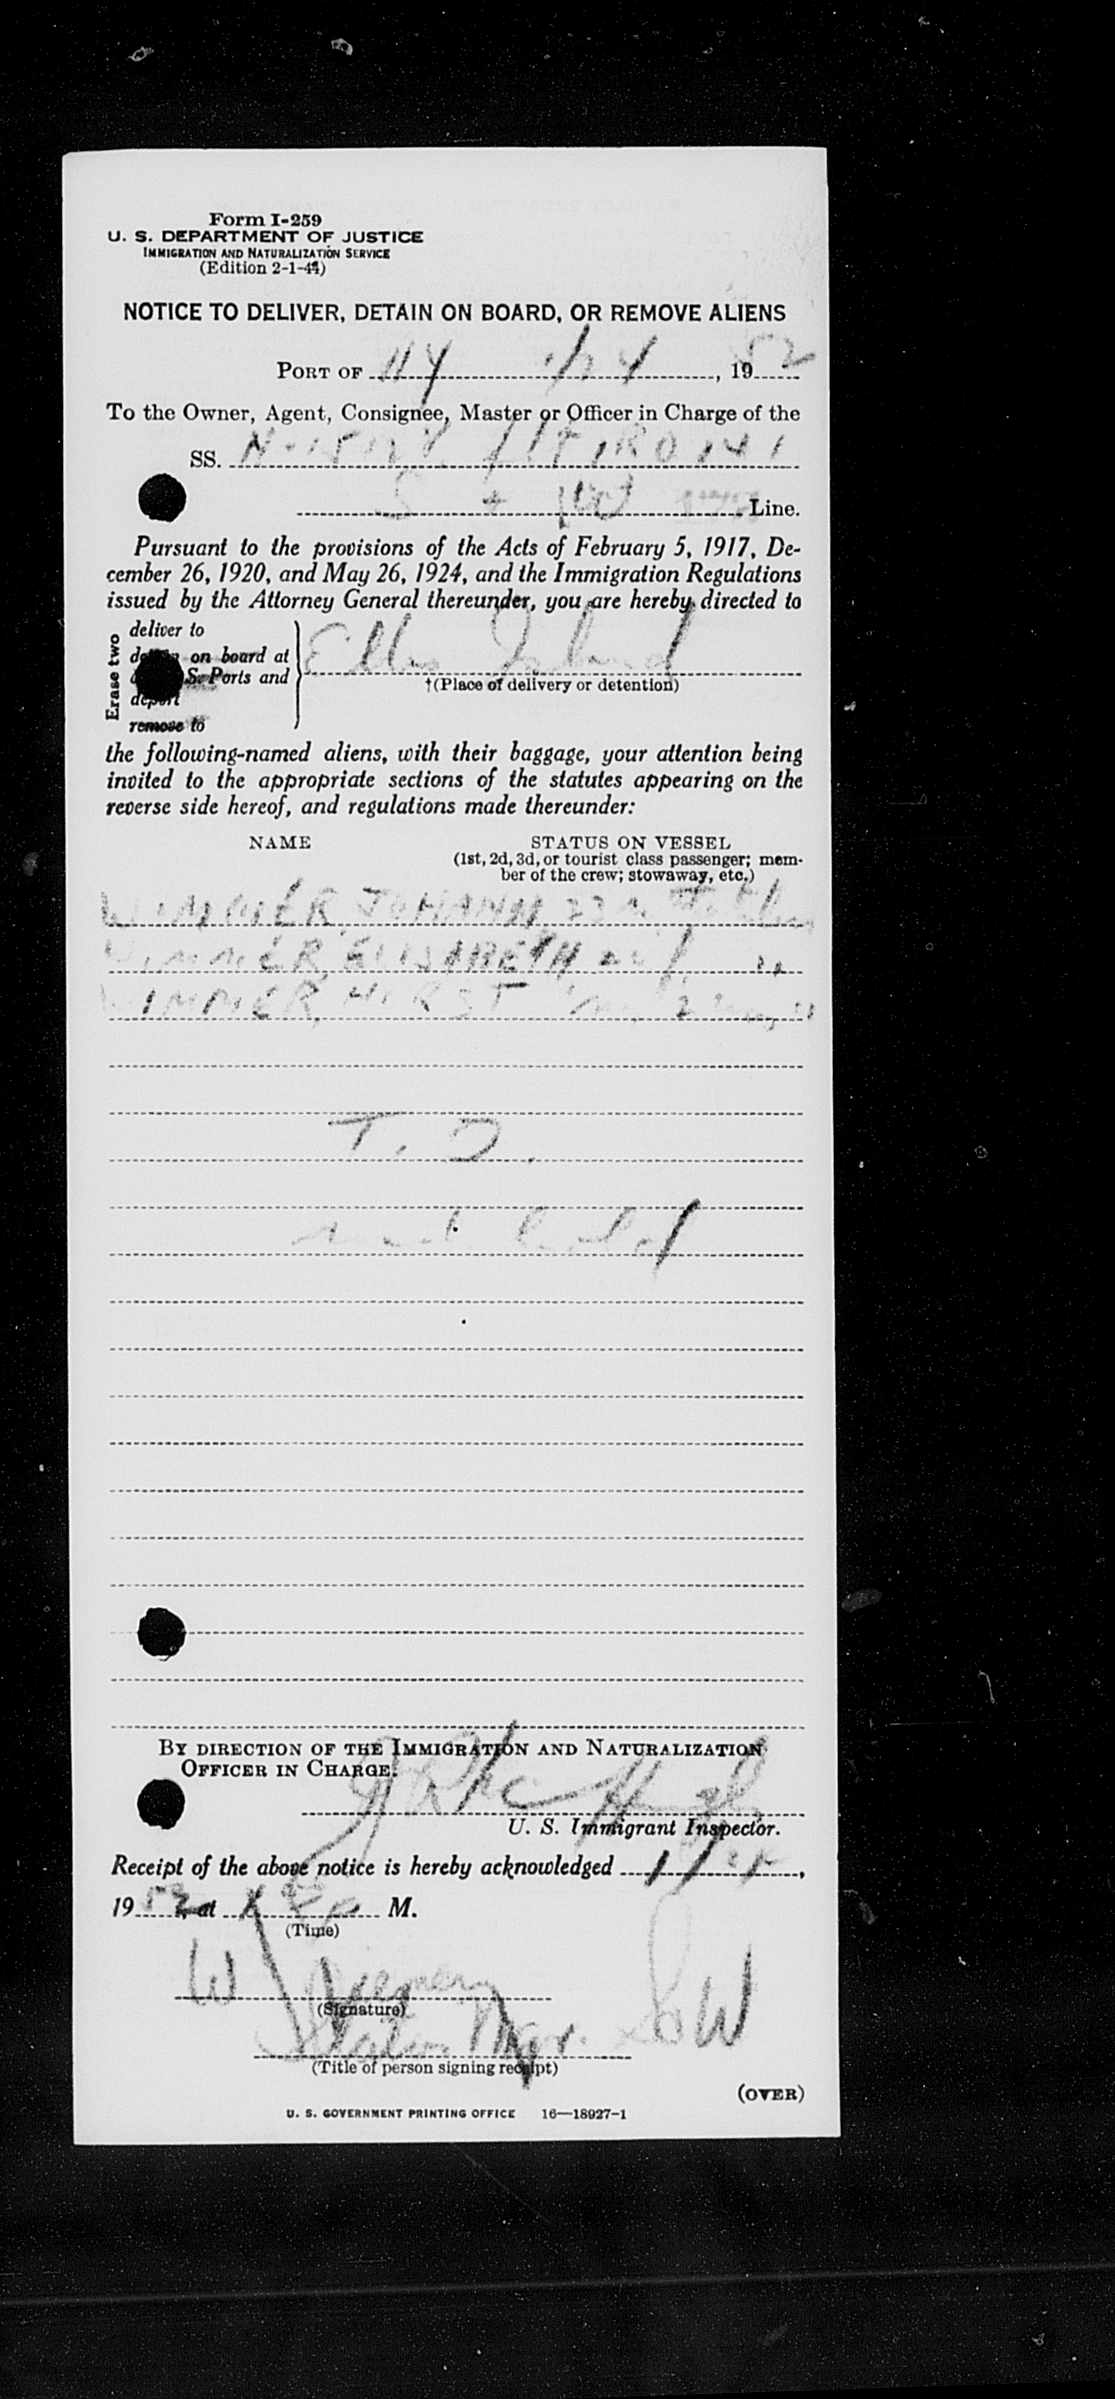 Form I-259
U. S. DEPARTMENT OF JUSTICE
IMMIGRATION AND NATURALIZATION SERVICE
(Edition 2-1-44)
NOTICE TO DELIVER, DETAIN ON BOARD, OR REMOVE ALIENS
PORT OF NY 1/24, 1952
To the Owner, Agent, Consignee, Master or Officer in Charge of the
SS.
S + W Line.
Pursuant to the provisions of the Acts of February 5, 1917, De-
cember 26, 1920, and May 26, 1924, and the Immigration Regulations
issued by the Attorney General thereunder, you are hereby directed to
Erase two
deliver to
on board at
S. Ports and
deport
remove to
Ellis Island
†(Place of delivery or detention)
the following-named aliens, with their baggage, your attention being
invited to the appropriate sections of the statutes appearing on the
reverse side hereof, and regulations made thereunder:
NAME STATUS ON VESSEL
(1st, 2d, 3d, or tourist class passenger; mem-
ber of the crew; stowaway, etc.)
WIMMER, JOHANN
WIMMER, ELISABETH "
WIMMER, "
T. D.
BY DIRECTION OF THE IMMIGRATION AND NATURALIZATION
OFFICER IN CHARGE:
U. S. Immigrant Inspector.
Receipt of the above notice is hereby acknowledged 1/24,
1952, at M.
(Time)
W
(Signature)
Station Mgr. S&W
(Title of person signing receipt)
(OVER)
U. S. GOVERNMENT PRINTING OFFICE 16—18927-1